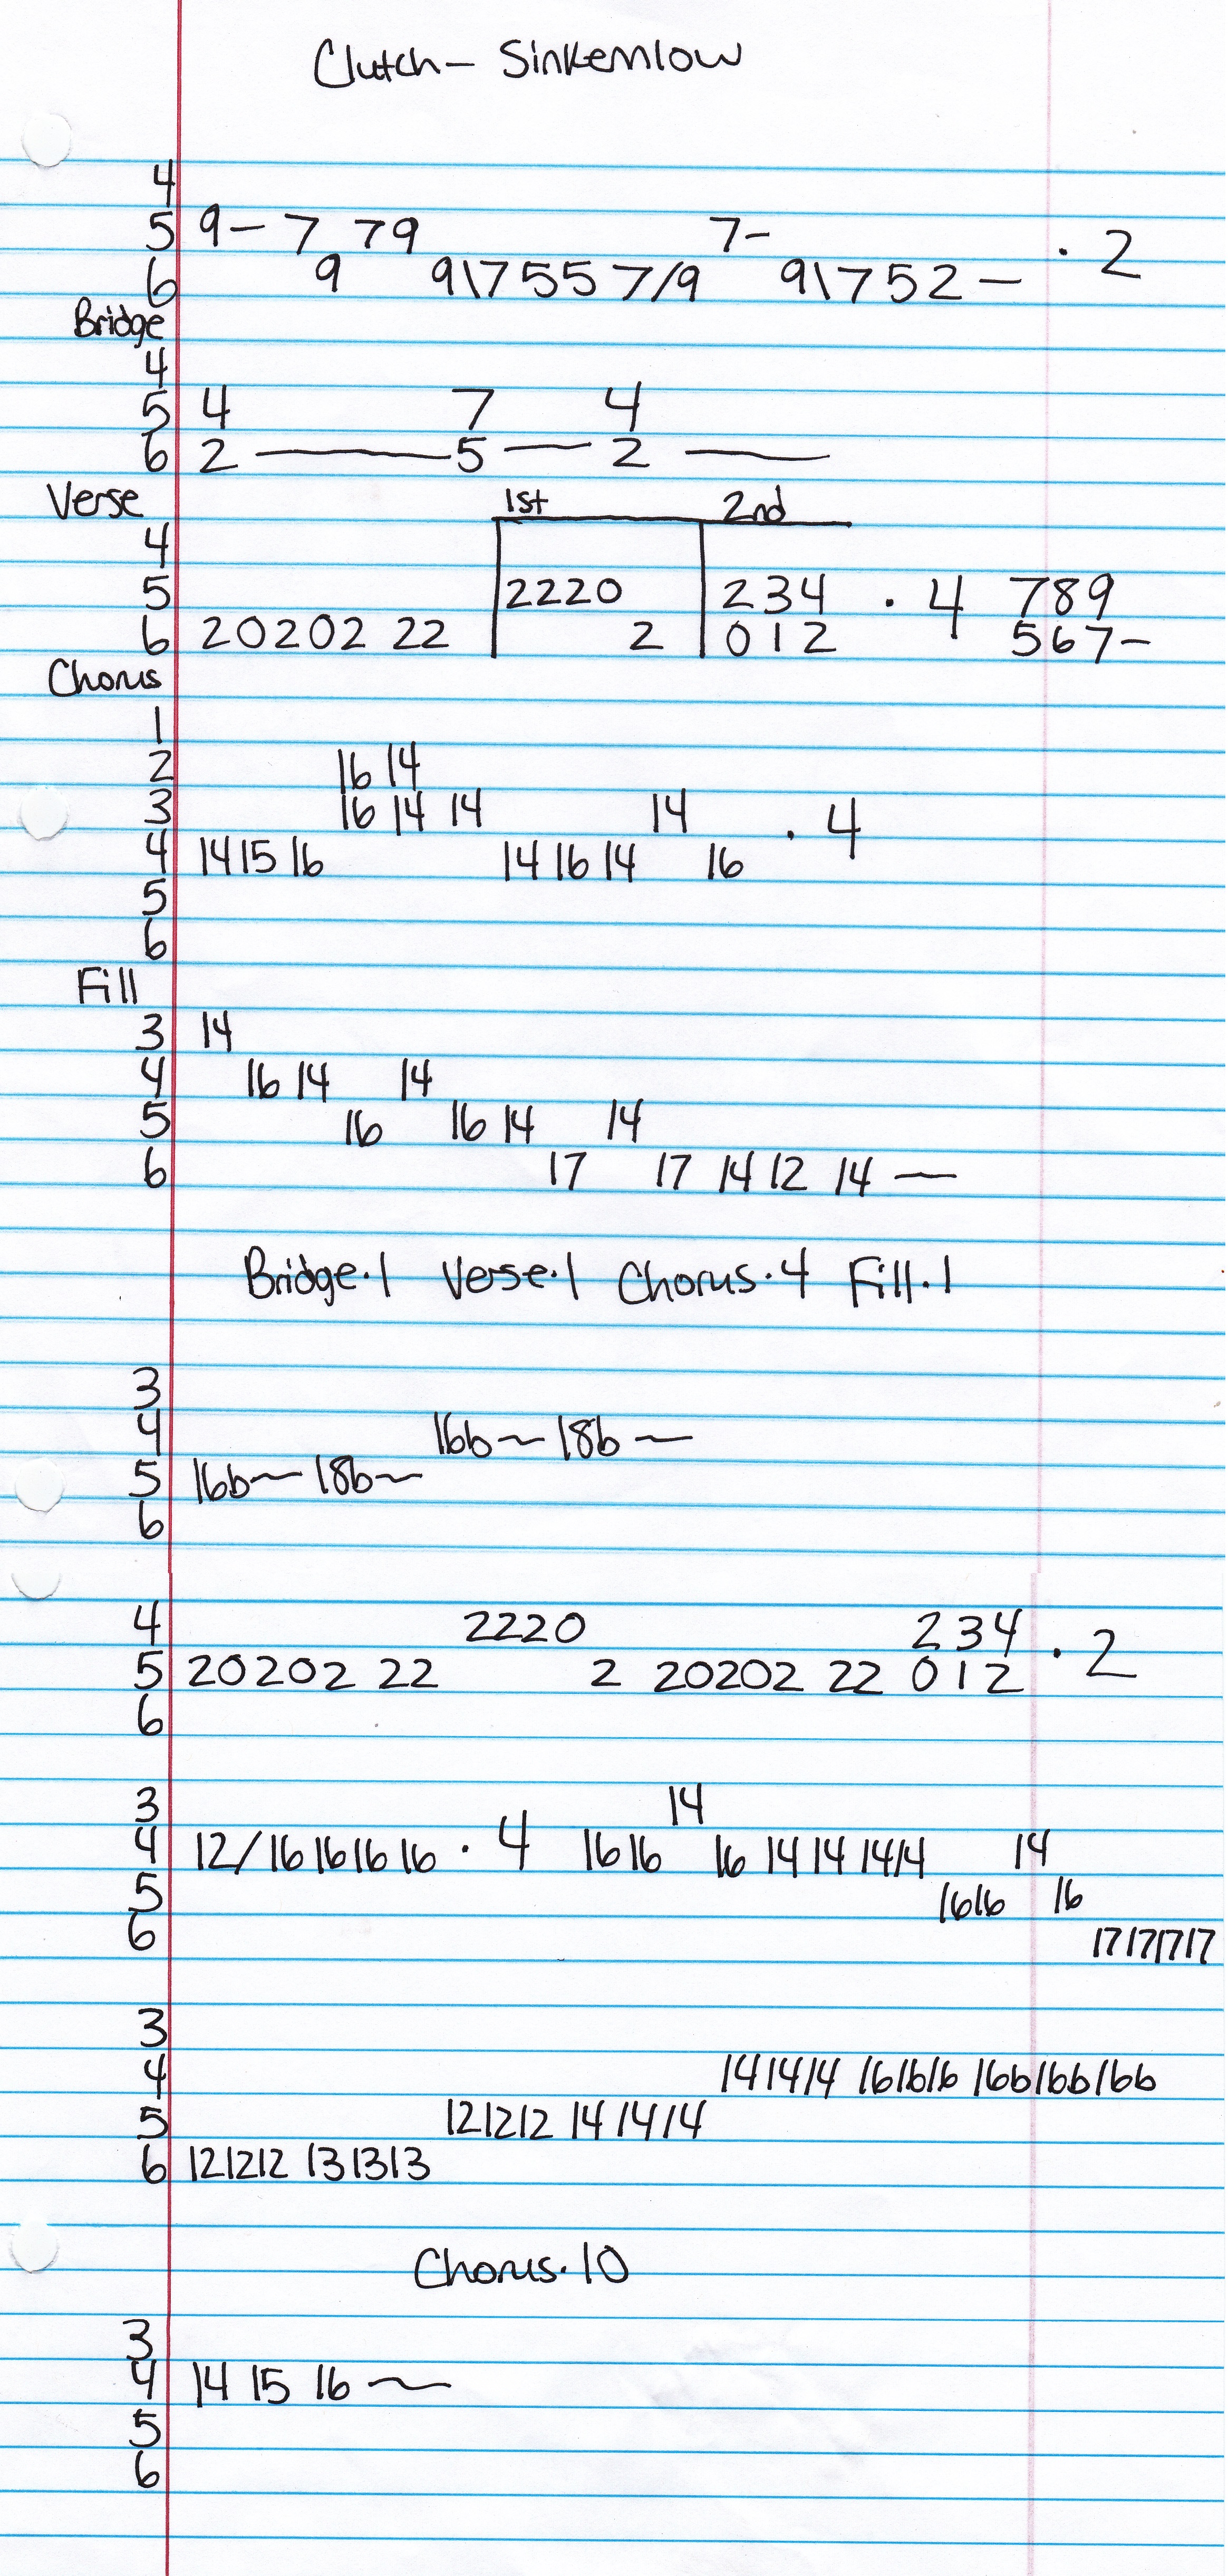 Clutch – Sinkemlow
4
5 9– 7 79 7–
6 9 9\7 5 5 7/9 9\7 5 2 — · 2
Bridge
4
5 4 7 4
6 2 —— 5 — 2 ——
Verse 1st 2nd
4
5 2220 234 · 4 789
6 20202 22 2 012 567–
Chorus
1
2 16 14
3 16 14 14 14 · 4
4 14 15 16 14 16 14 16
5
6
Fill
3 14
4 16 14 14
5 16 16 14 14
6 17 17 14 12 14 —
Bridge·1 Verse·1 Chorus·4 Fill·1
3
4 16b~ 18b~
5 16b~ 18b~
6
4 2220 234 · 2
5 20202 22 2 20202 22 012
6
3 14
4 12/16 16 16 16 · 4 16 16 16 14 14 14 14 14
5 16 16 16
6 17 17 17 17
3
4 14 14 14 16 16 16 16b 16b 16b
5 12 12 12 14 14 14
6 12 12 12 13 13 13
Chorus·10
3
4 14 15 16 ~
5
6